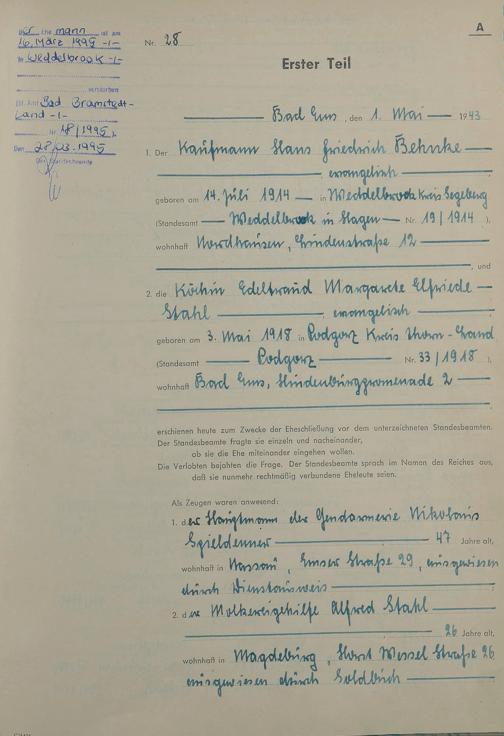 A
Der Ehemann ist am
16. März 1995 -/-
in Weddelbrook -/-
verstorben
St. Amt Bad Bramstedt-
Land -/-
Nr. 18/1995).
Den 28.03.1995
Der Standesbeamte
Nr. 28
Erster Teil
Bad Ems, den 1. Mai 1943
1. Der Kaufmann Hans Friedrich Behnke
evangelisch
geboren am 14. Juli 1914 in Weddelbrook Kreis Segeberg
(Standesamt Weddelbrook in Hagen Nr. 19/1914),
wohnhaft Nordhausen, Lindenstraße 12
, und
2. die Köchin Edeltraud Margarete Elfriede
Stahl, evangelisch
geboren am 3. Mai 1918 in Podgorz Kreis Thorn-Land
(Standesamt Podgorz Nr. 33/1918),
wohnhaft Bad Ems, Hindenburgpromenade 2
erschienen heute zum Zwecke der Eheschließung vor dem unterzeichneten Standesbeamten.
Der Standesbeamte fragte sie einzeln und nacheinander,
ob sie die Ehe miteinander eingehen wollen.
Die Verlobten bejahten die Frage. Der Standesbeamte sprach im Namen des Reiches aus,
daß sie nunmehr rechtmäßig verbundene Eheleute seien.
Als Zeugen waren anwesend:
1. der Hauptmann der Gendarmerie Nikolaus
Spieldenner 47 Jahre alt,
wohnhaft in Nassau, Emser Straße 29, ausgewiesen
durch Dienstausweis
2. der Molkereigehilfe Alfred Stahl
26 Jahre alt,
wohnhaft in Magdeburg, Horst Wessel Straße 26
ausgewiesen durch Soldbuch